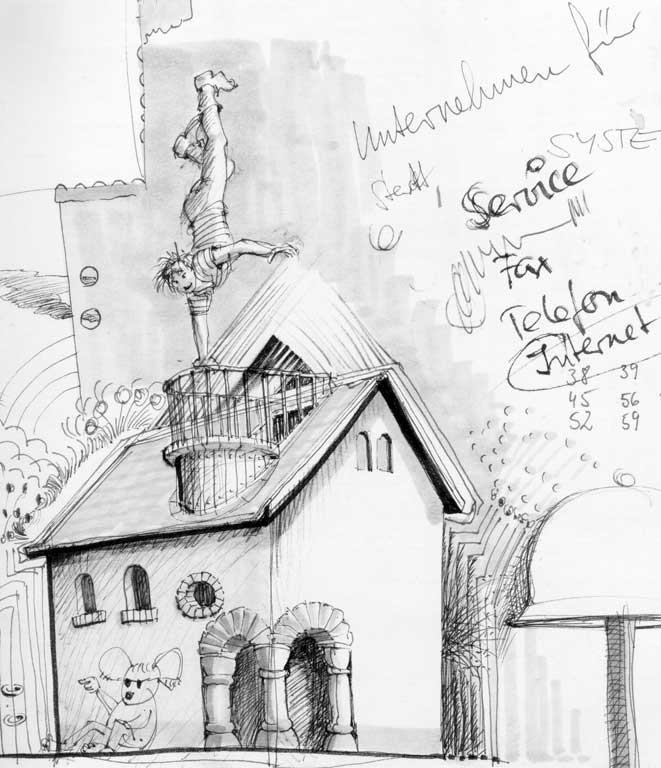 Unternehmen für
steckt,
SYSTE
Service
Fax
Telefon
Internet
38 39
45 56
52 59